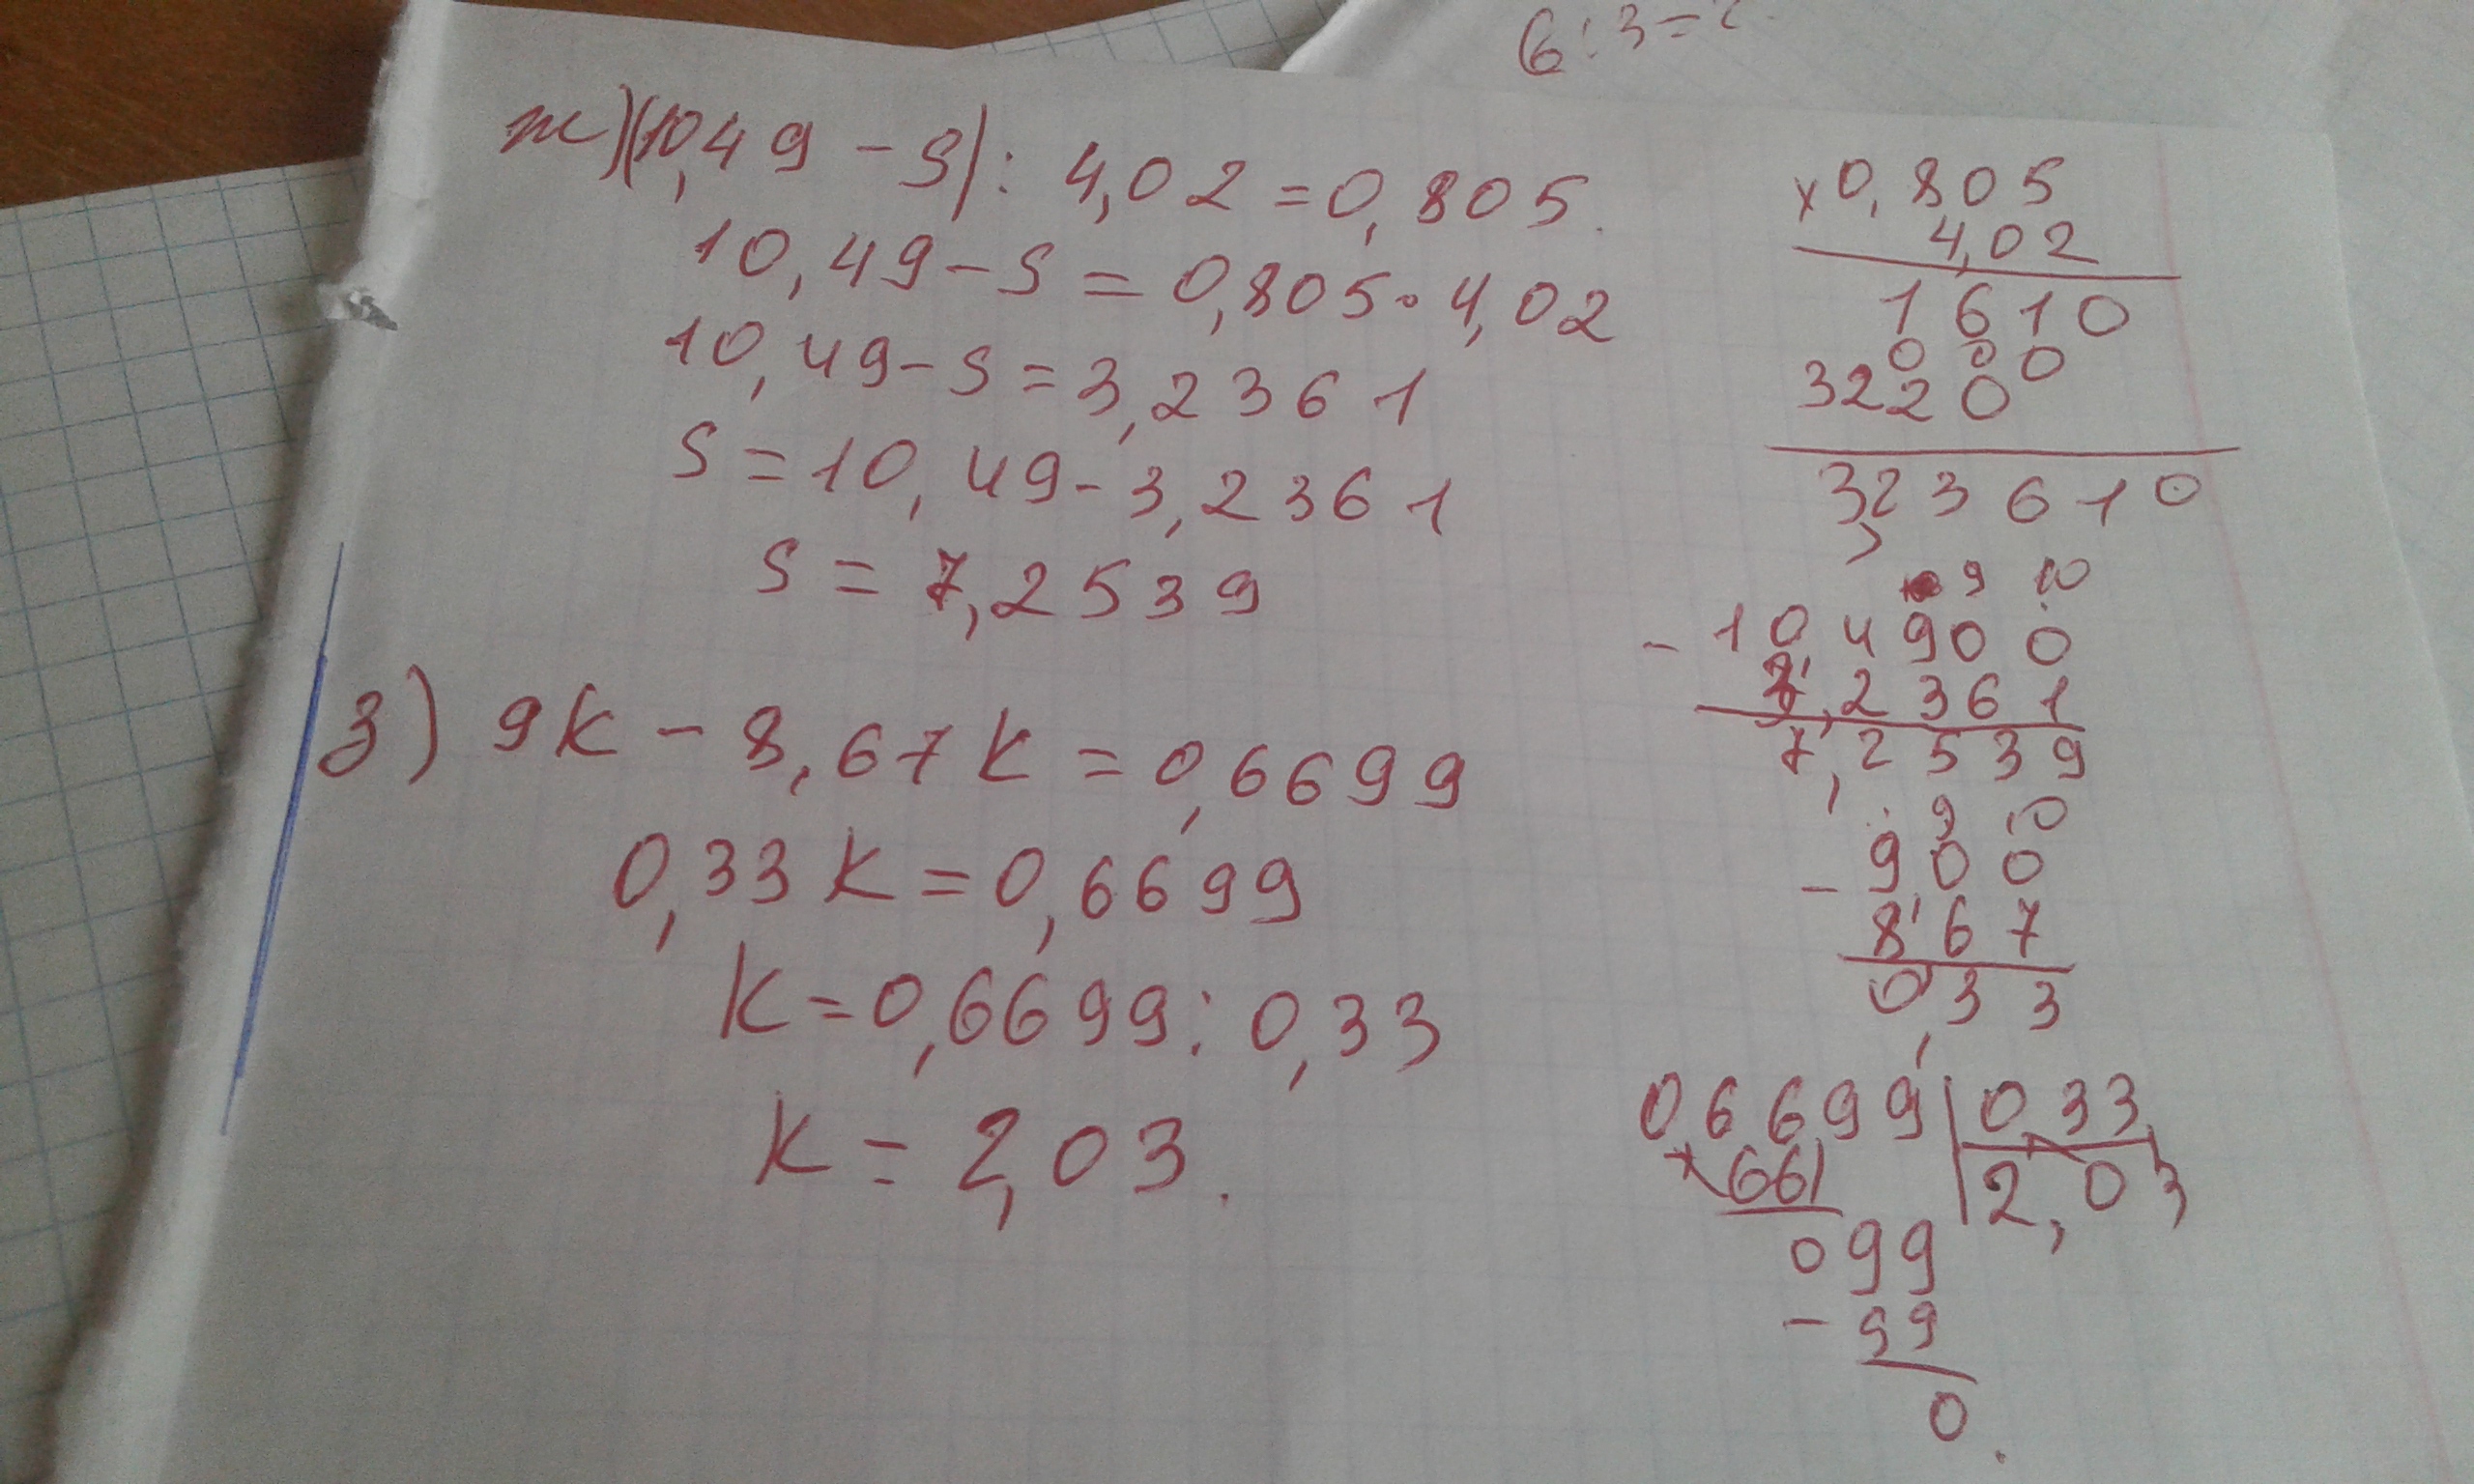 6:3=?
ж)(10,49-S):4,02=0,805.
10,49-S=0,805·4,02
10,49-S=3,2361
S=10,49-3,2361
S=7,2539
з) 9K-8,67K=0,6699
0,33K=0,6699
K=0,6699:0,33
K=2,03.
×0,805
4,02
1610
000
3220
3,23610
9 10
-10,4900
3,2361
7,2539
9 10
-900
867
0,33
06699 0,33
66 2,03
099
-99
0.